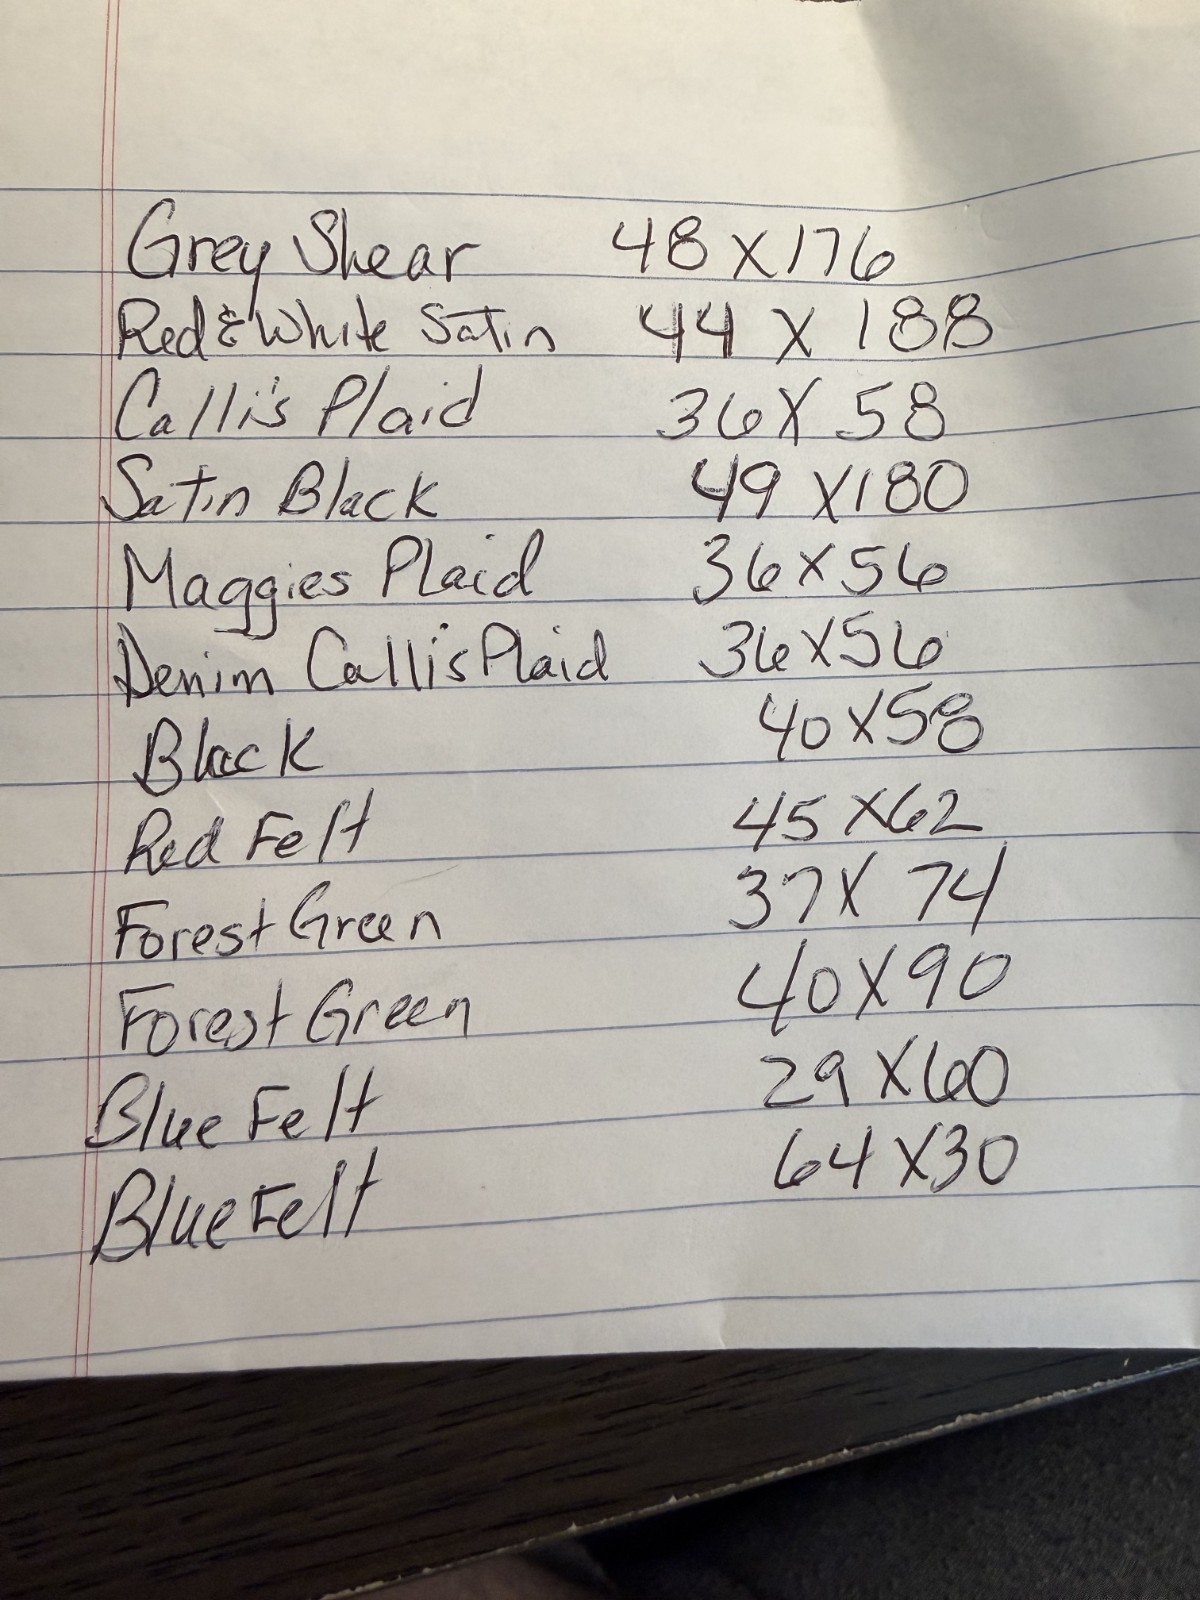 Grey Shear 48 X 176
Red & White Satin 44 X 188
Calli's Plaid 36 X 58
Satin Black 49 X 180
Maggies Plaid 36 X 56
Denim Calli's Plaid 36 X 56
Black 40 X 58
Red Felt 45 X 62
Forest Green 37 X 74
Forest Green 40 X 90
Blue Felt 29 X 60
Blue Felt 64 X 30